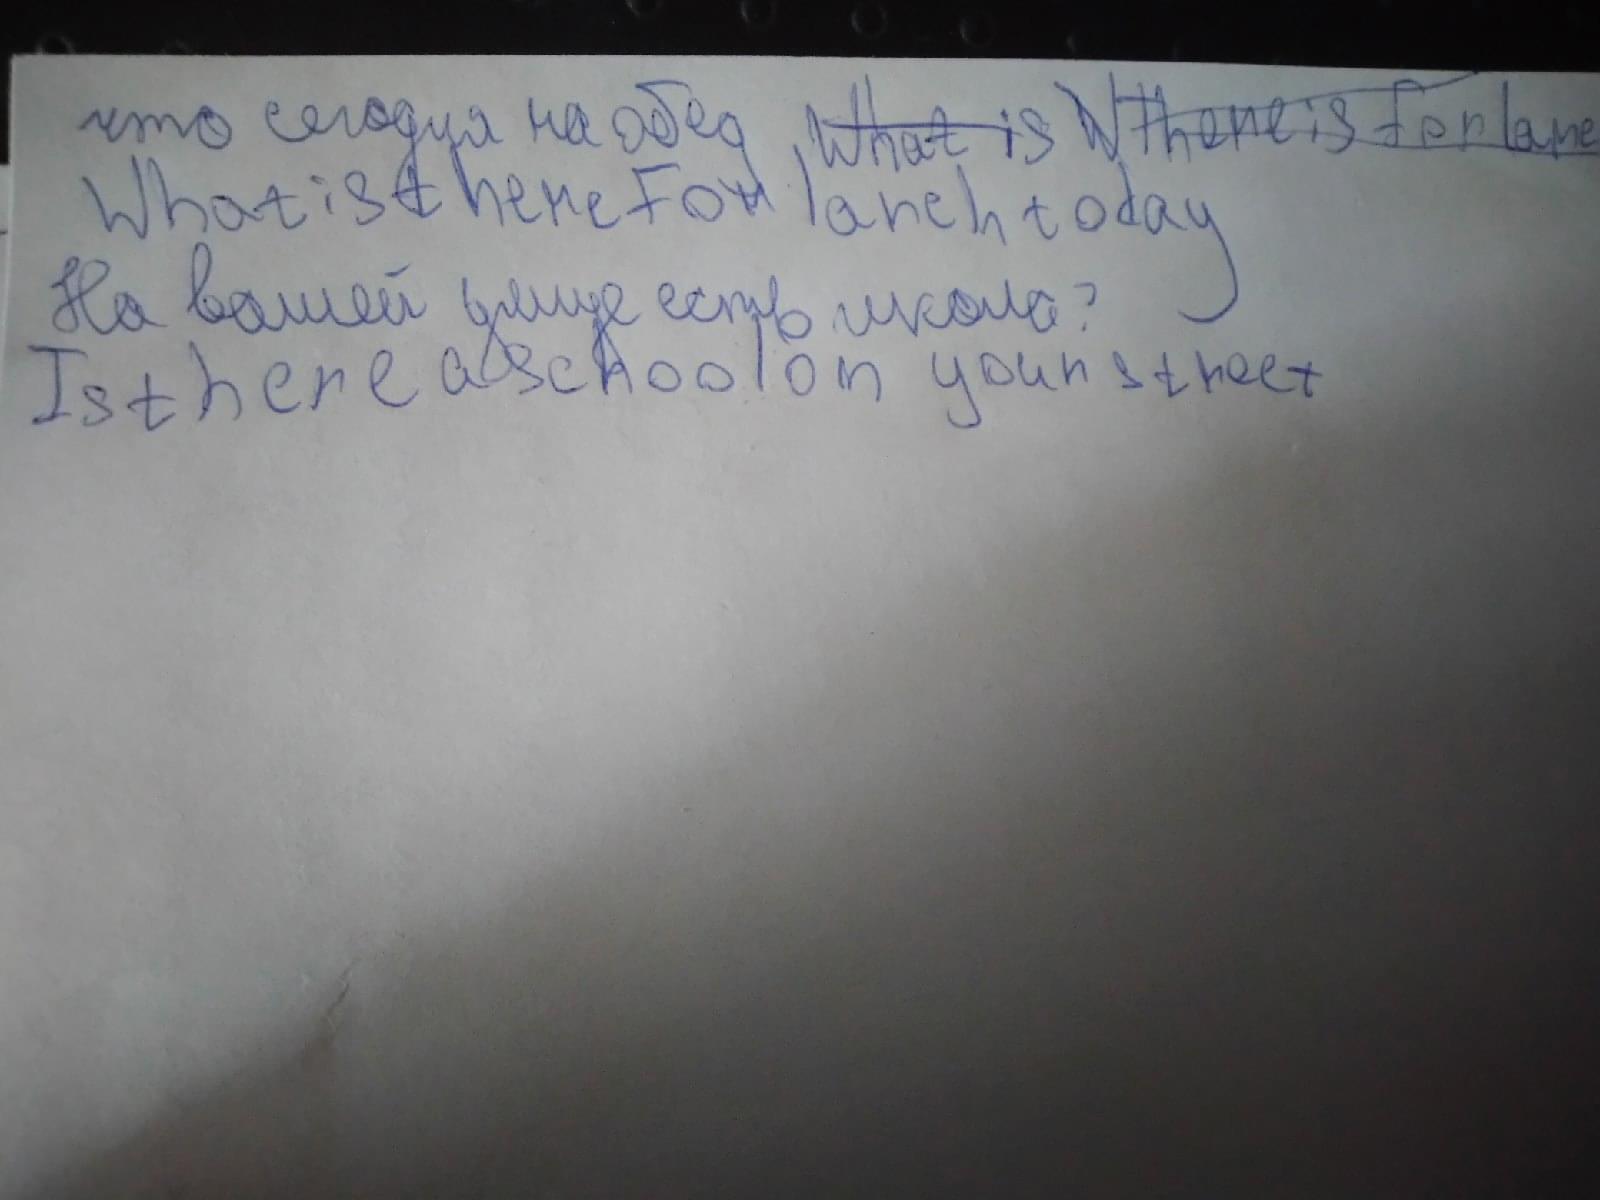 что сегодня на обед What is There is for lane
What is there For lanch today
На вашей улице есть школа?
Is there a school on your street